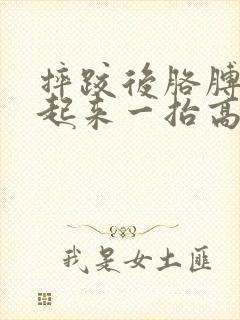 摔跤後胳膊
起來一抬高
我是女土匪